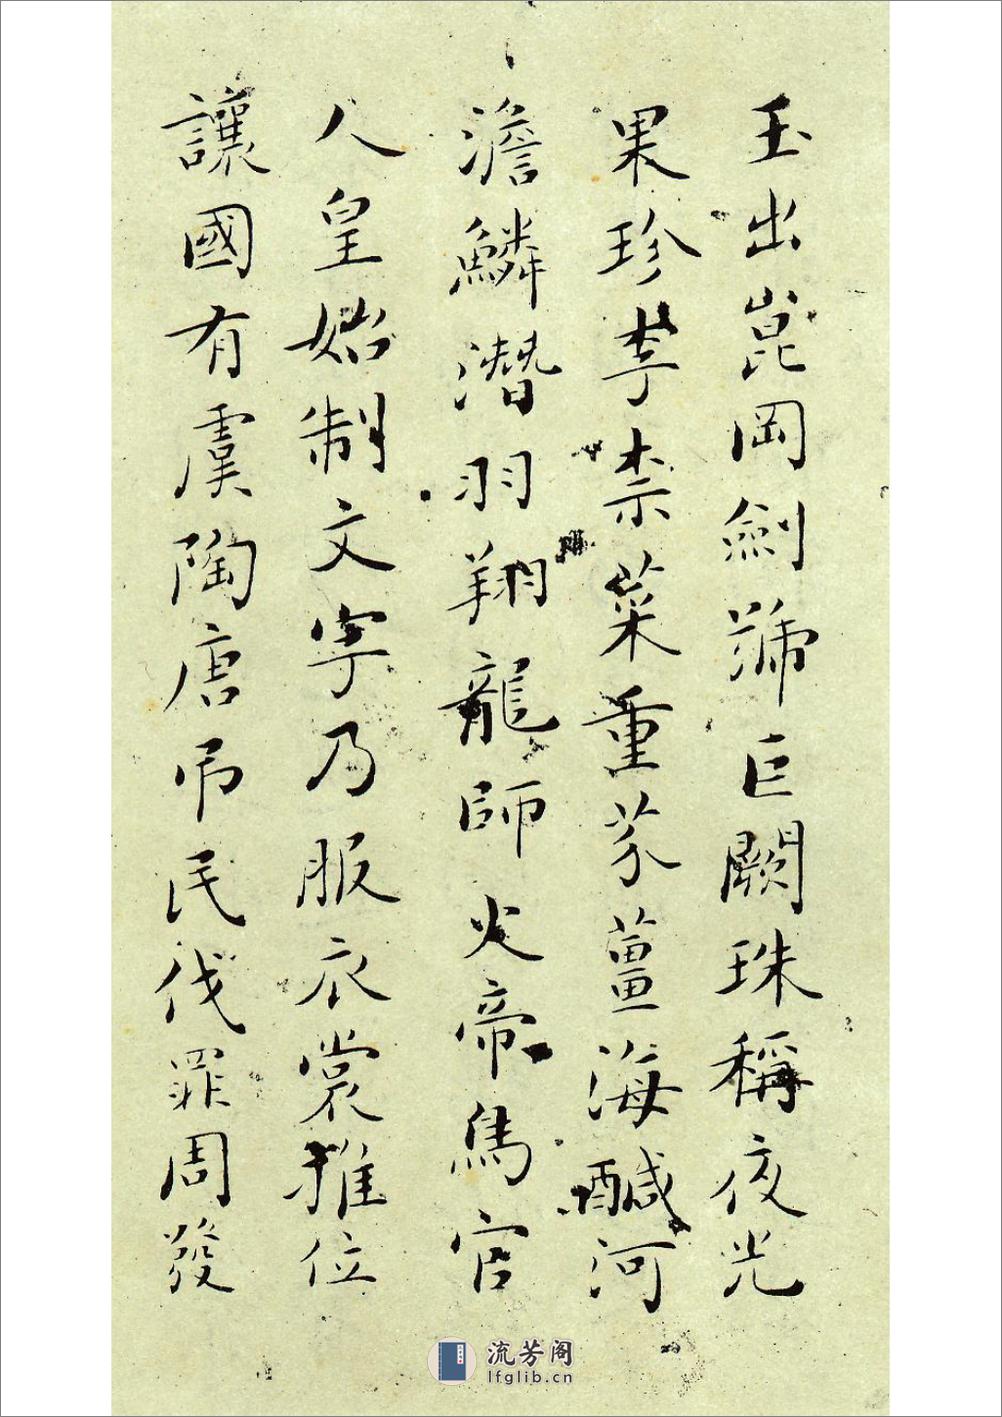 玉出崑岡劍號巨闕珠稱夜光
果珍李柰菜重芥薑海醎河
澹鱗潛羽翔龍師火帝鳥官
人皇始制文字乃服衣裳推位
讓國有虞陶唐吊民伐罪周發
流芳阁
lfglib.cn